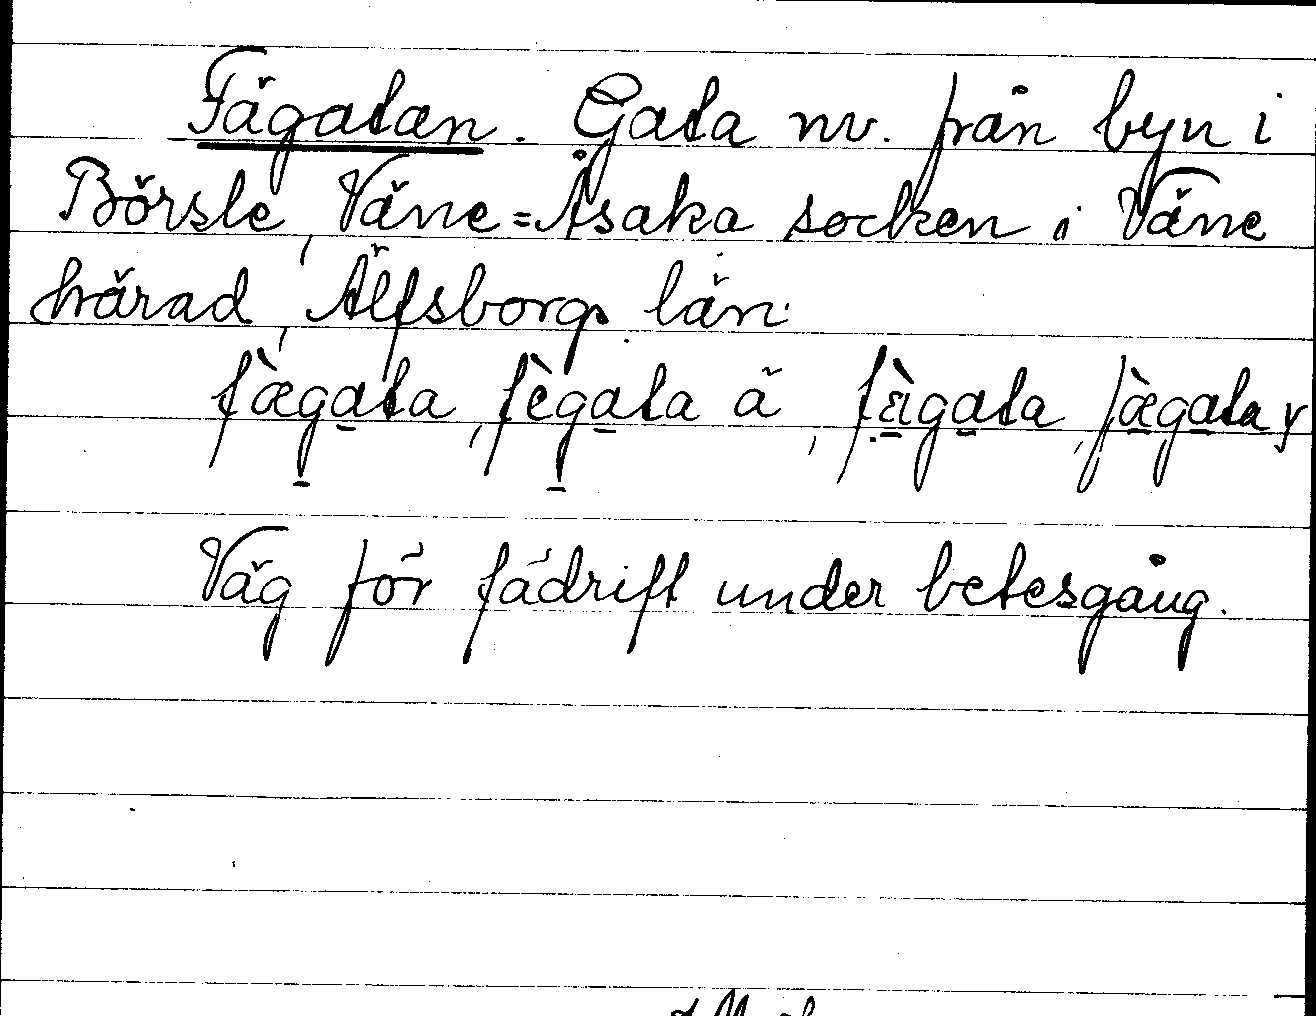 Fägatan. Gata nv. från byn i
Börsle, Väne=Åsaka socken i Väne
härad, Älfsborgs län.
fæ̀gata, fègata ä, fä̀gata, fæ̀gata y
Väg för fädrift under betesgång.